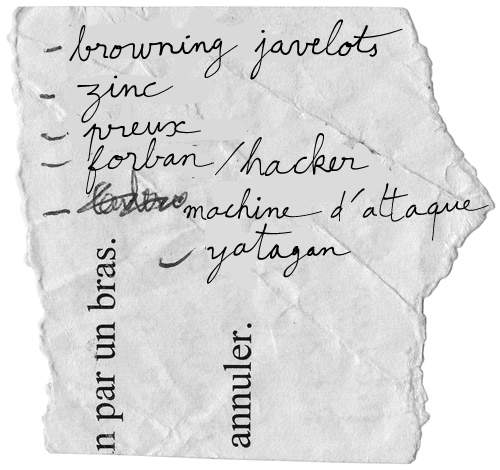 - browning javelots
- zinc
- preux
- forban/hacker
- machine d'attaque
- yatagan
n par un bras.
annuler.